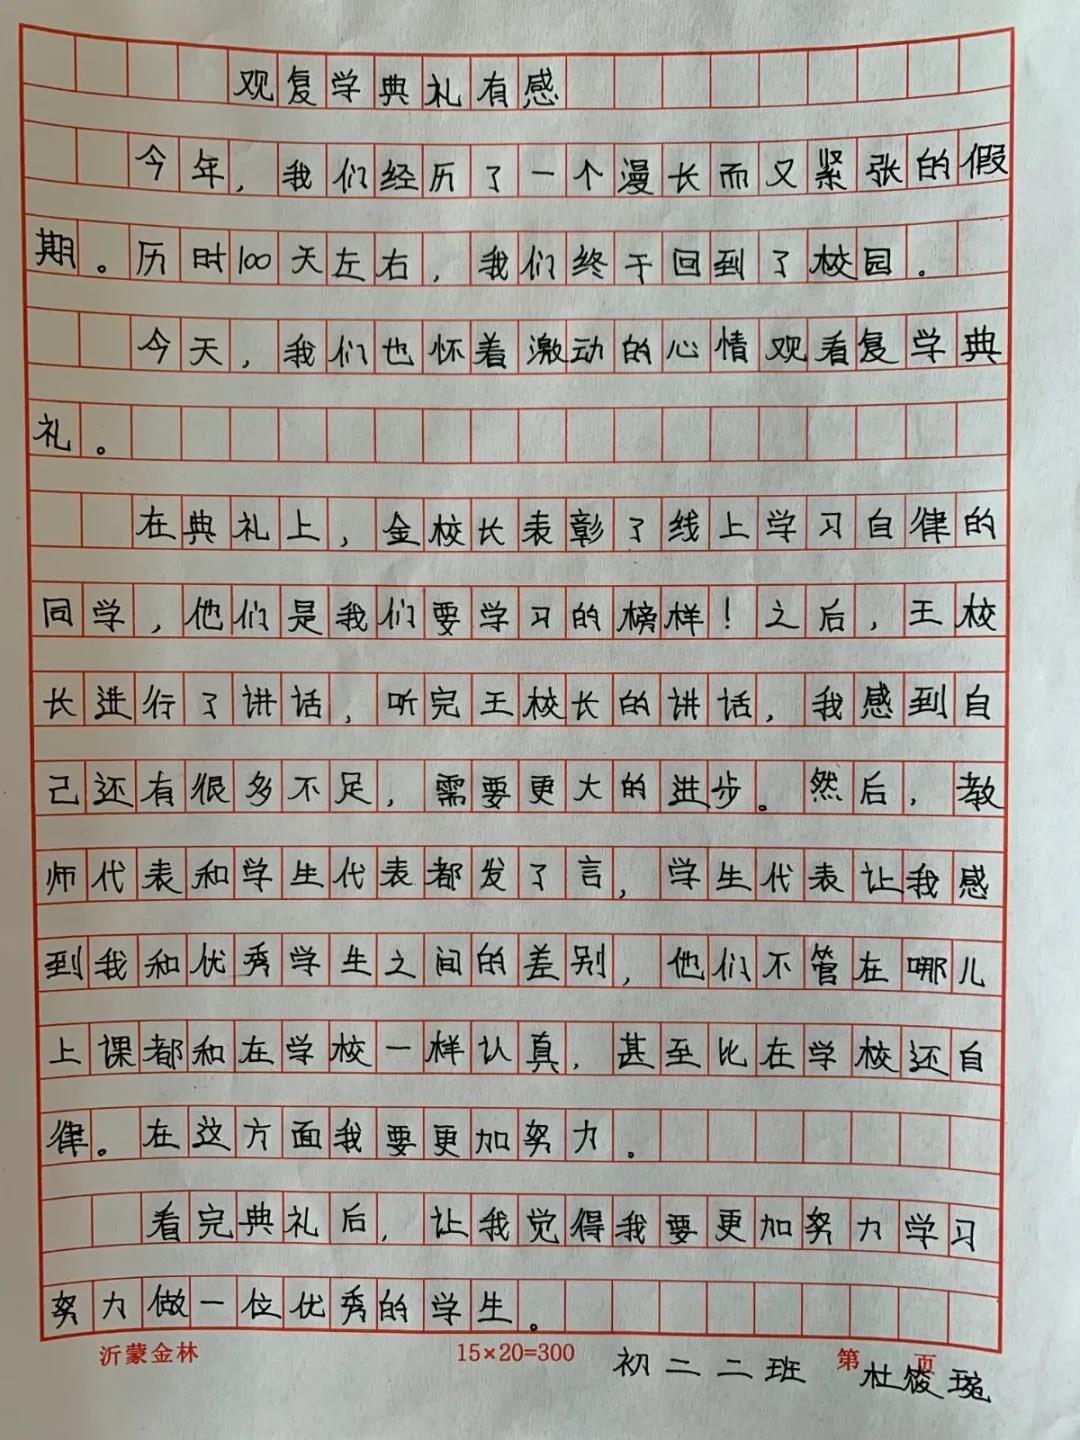 观复学典礼有感
今年，我们经历了一个漫长而又紧张的假
期。历时100天左右，我们终于回到了校园。
今天，我们也怀着激动的心情观看复学典
礼。
在典礼上，金校长表彰了线上学习自律的
同学，他们是我们要学习的榜样！之后，王校
长进行了讲话，听完王校长的讲话，我感到自
己还有很多不足，需要更大的进步。然后，教
师代表和学生代表都发了言，学生代表让我感
到我和优秀学生之间的差别，他们不管在哪儿
上课都和在学校一样认真，甚至比在学校还自
律。在这方面我要更加努力。
看完典礼后，让我觉得我要更加努力学习
努力做一位优秀的学生。
沂蒙金林 15×20=300 第 页
初二二班 杜筱琬